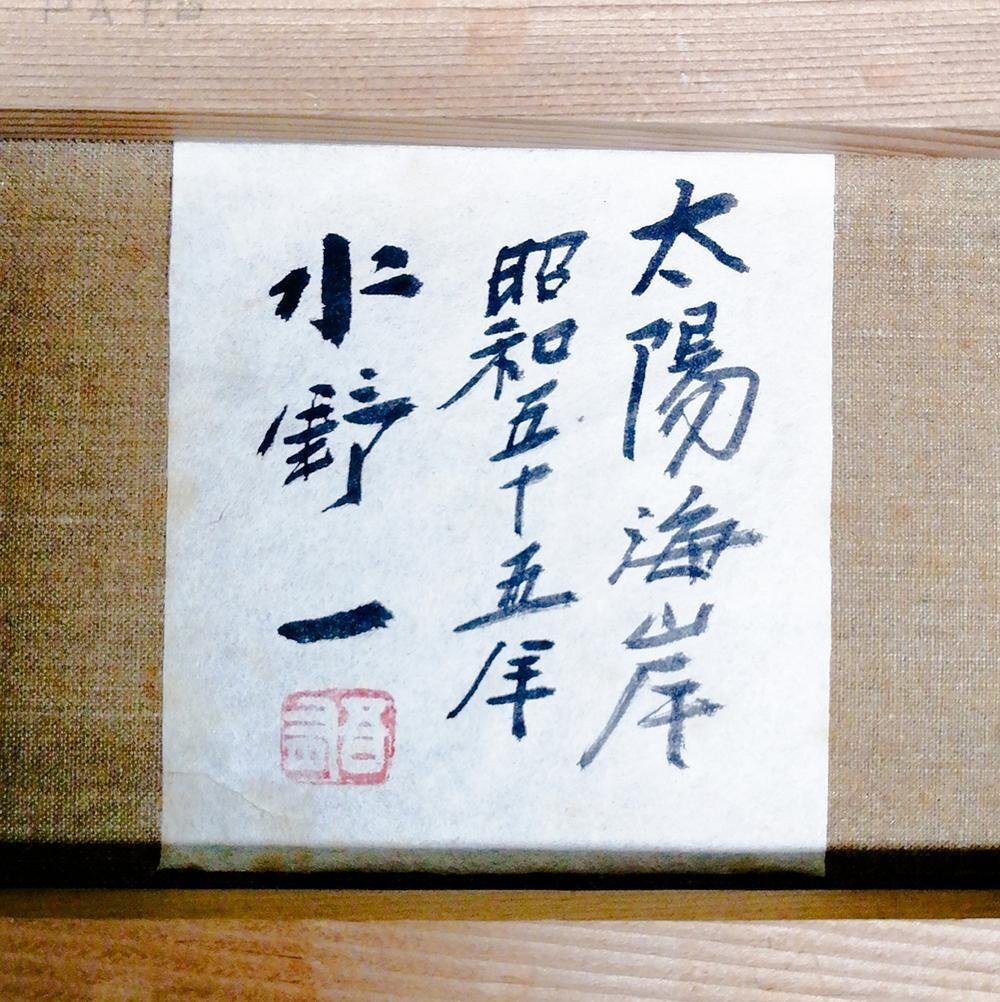 PAT.P
太陽海岸
昭和五十五年
水野 一